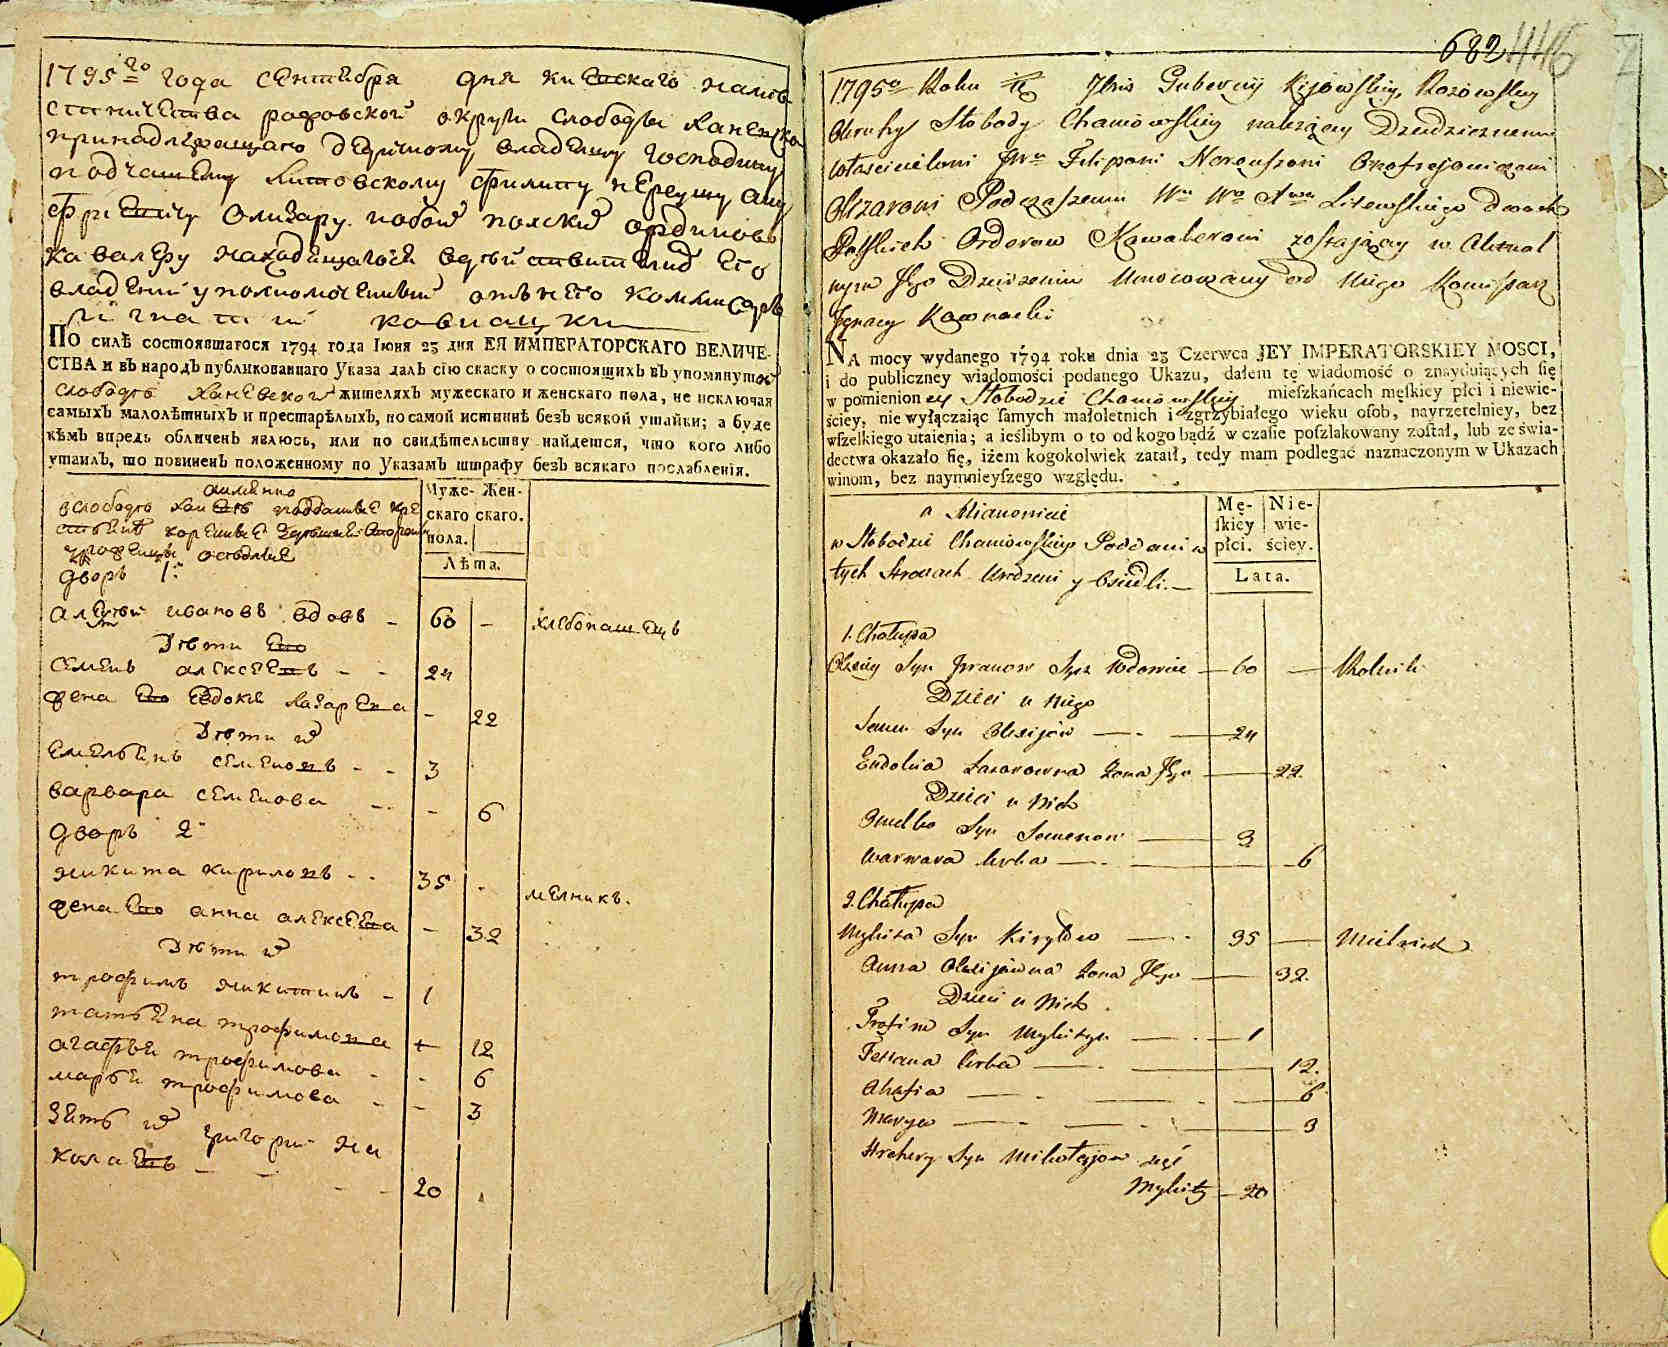 1795го года сентебря дня киевскаго намѣ
стничества радовской округи слободы ханевско
принадлежащаго дедичному владелцу господину
подчашему литовскому филипу нереушу ану
фриевичу олизару обой полские ординовъ
кавалеру находящагося в действителнѣ его
владений уполномоченный отъ него коммисаръ
игнатий кавнацки
По силѣ состоявшагося 1794 года Іюня 23 дня ЕЯ ИМПЕРАТОРСКАГО ВЕЛИЧЕ-
СТВА и въ народъ публикованнаго Указа далъ сію скаску о состоящихъ въ упомянутой
слободѣ ханевской жителяхъ мужескаго и женскаго пола, не исключая
самыхъ малолѣтныхъ и престарѣлыхъ, по самой истиннѣ безъ всякой утайки; а буде
кѣмъ впредь обличенъ явлюсь, или по свидѣтельству найдется, что кого либо
утаилъ, то повиненъ положенному по Указамъ штрафу безъ всякаго послабленія.
аименно
в слободѣ подданные
дворъ 1:
Муже- Жен-
скаго скаго.
пола.
Лѣта.
алексей ивановъ вдовъ - 60 - хлебопашецъ
Дѣти ево
семенъ алексеевъ - - 24
жена ево евдокия лазарева - 22
Дѣти их
емельянъ семеновъ - - 3
варвара семенова - - 6
дворъ 2
никита кириловъ - - 35 - мелникъ.
жена ево анна алексеева - 32
Дѣти их
трофимъ никитинъ - 1
татьяна трофимова 12
агафья трофимова - - 6
марья трофимова - - 3
зять их григорий ни
колаевъ - - - - 20
682 446
1795o Roku Dnia Gubernij Kijowskiey, Radowskiey
Okruhy Słobody Chaniowskiey należącey Dziedzicznemu
właścicielowi JWu Filipowi Nereuszowi Onofrejowiczowi
Olizarowi Podczaszemu Wu Wo Xwa Litewskiego dwoch
Polskich Orderow Kawalerowi zostającey w aktual
nym Jego Dzierżeniu Umocowany od Niego Komisarz
Ignacy Kawnacki
NA mocy wydanego 1794 roku dnia 23 Czerwca JEY IMPERATORSKIEY MOSCI,
i do publiczney wiadomości podanego Ukazu, dałem tę wiadomość o znayduiących się
w pomienioney Słobodzie Chaniowskiey mieſzkańcach męſkiey płci i niewie-
ściey, nie wyłączaiąc ſamych małoletnich i zgrzybiałego wieku oſob, nayrzetelniey, bez
wſzelkiego utaienia; a ieślibym o to od kogo bądź w czaſie poſzlakowany zoſtał, lub ze świa-
dectwa okazało ſię, iżem kogokolwiek zataił, tedy mam podlegać naznaczonym w Ukazach
winom, bez naymnieyſzego względu.
a Mianowicie
w Słobodzie Chaniowskiey Poddani w
tych Stronach Urodzeni y Osiedli. -
Mę-
ſkiey
płci.
Nie-
wie-
ściey.
Lata.
1. Chałupa
Olexiey Syn Iwanow Syn Wdowiec - 60 - Rolnik
Dzieci u Niego
Semen Syn Olexijow - - 24
Eudokia Lazarowna Zona Jego - 22
Dzieci u Nich
Omelko Syn Semenow - 3
Warwara Corka - - 6
2. Chałupa
Mykita Syn Kiryłow - - 35 - Mielnik
Anna Olexijowna Zona Jego - 32.
Dzieci u Nich.
Trofim Syn Mykityn - - 1
Tetiana Corka - - 12.
Ahafia - - - 6
Marya - - - 3
Hrehory Syn Mikołajow zięć
Mykity - 20